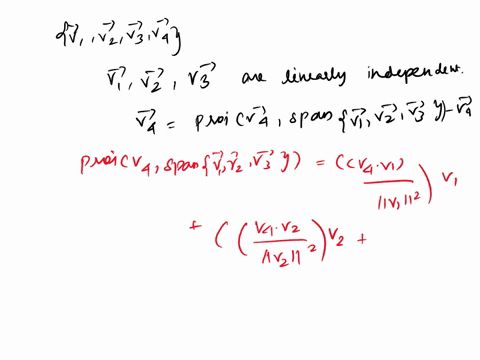 {v⃗₁, v⃗₂, v⃗₃, v⃗₄}
v⃗₁, v⃗₂, v⃗₃ are linearly independent.
v⃗₄ = proj(v⃗₄, span{v⃗₁, v⃗₂, v⃗₃}) - v⃗₄
proj(v₄, span{v⃗₁, v⃗₂, v⃗₃}) = ((v₄·v₁)/||v₁||²) v₁
+ ((v₄·v₂/||v₂||²) v₂ +